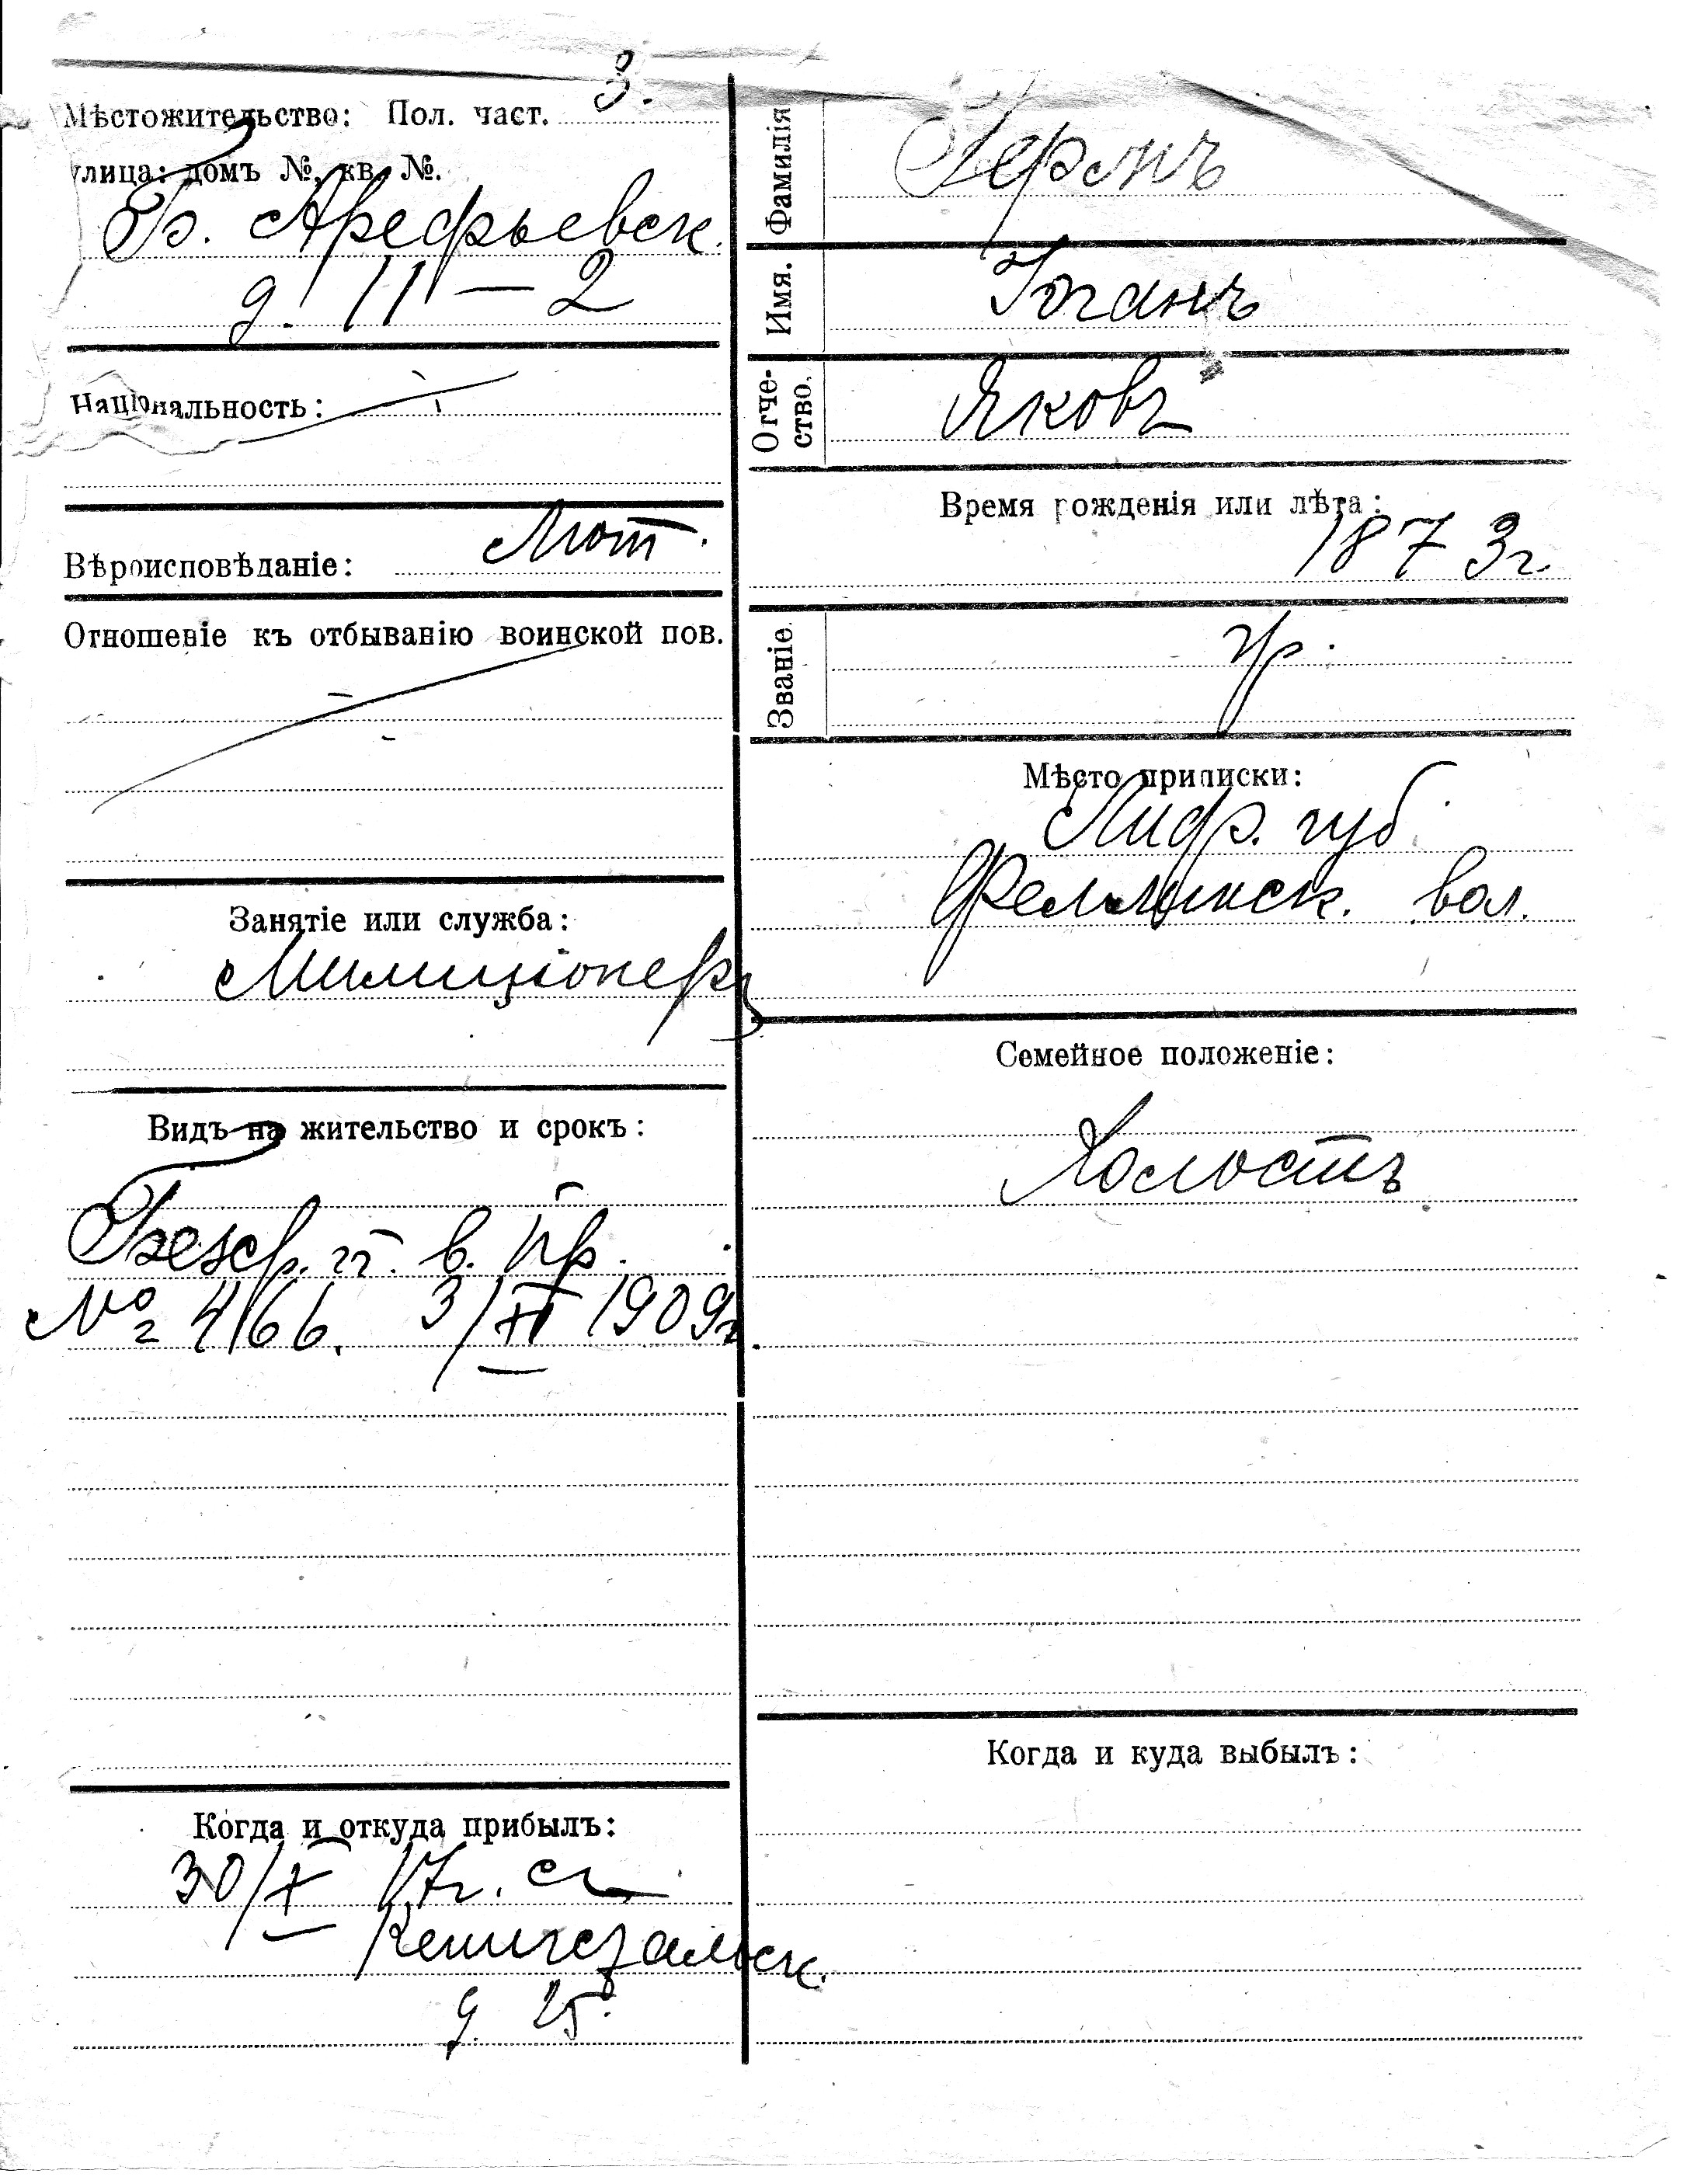 Мѣстожительство: Пол. част. 3.
улица: домъ №, кв. №.
Б. Арефьевск.
д. 11 — 2
Національность: —
Вѣроисповѣданіе: Лют.
Отношеніе къ отбыванію воинской пов.
Занятіе или служба:
Милиціонеръ
Видъ на жительство и срокъ:
Безср. п. в. пр.
№ 4166. 3/XI 1909г.
Когда и откуда прибылъ:
30/X 17г. съ
Кенигсзальск.
д. 25.
Фамилія
Имя. Іоганъ
Отче-
ство. Яковъ
Время рожденія или лѣта:
1873г.
Званіе кр.
Мѣсто приписки:
Лифл. губ.
Феллинск. вол.
Семейное положеніе:
Холостъ
Когда и куда выбылъ: